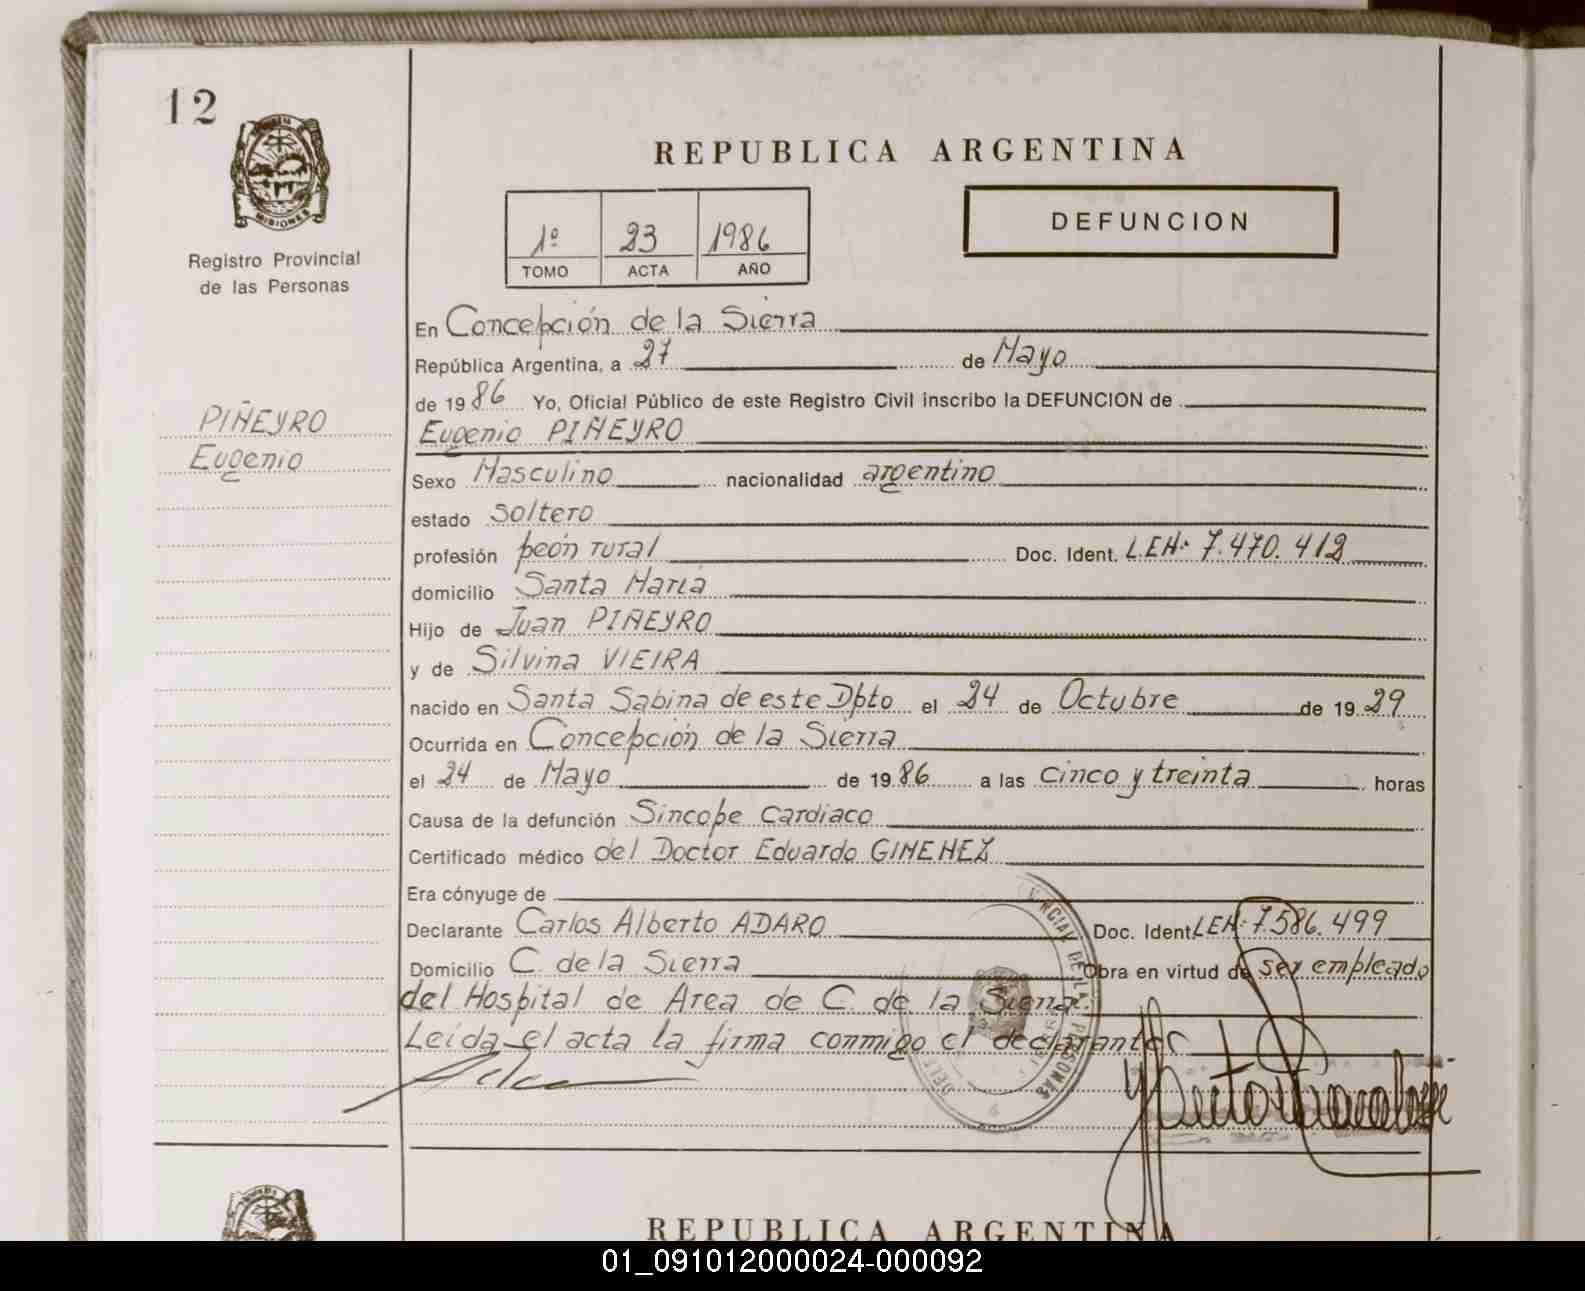 12
MISIONES
Registro Provincial
de las Personas
PIÑEYRO
Eugenio
REPUBLICA ARGENTINA
1º 23 1986
TOMO ACTA AÑO
DEFUNCION
En Concepción de la Sierra
República Argentina, a 27 de Mayo
de 1986 Yo, Oficial Público de este Registro Civil inscribo la DEFUNCION de
Eugenio PIÑEYRO
Sexo Masculino nacionalidad argentino
estado soltero
profesión peón rural Doc. Ident. L.EM. 7.470.412
domicilio Santa María
Hijo de Juan PIÑEYRO
y de Silvina VIEIRA
nacido en Santa Sabina de este Dpto el 24 de Octubre de 1929
Ocurrida en Concepción de la Sierra
el 24 de Mayo de 1986 a las cinco y treinta horas
Causa de la defunción Sincope Cardiaco
Certificado médico del Doctor Eduardo GIMENEZ
Era cónyuge de
Declarante Carlos Alberto ADARO Doc. Ident. LEM. 7.586.499
Domicilio C. de la Sierra Obra en virtud de ser empleado
del Hospital de Area de C. de la Sierra.
Leída el acta la firma conmigo el declarante
DE LAS PERSONAS
REPUBLICA ARGENTINA
01_091012000024-000092